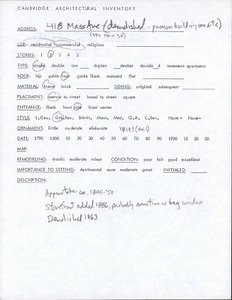 CAMBRIDGE ARCHITECTURAL INVENTORY
ADDRESS: 418 Mass Ave (demolished - present building on site)
USE: residential commercial religious
STORIES: 1 2 3 4 5
TYPE: single double row duplex decker double d tenement apartment
ROOF: hip gable flank gable mansard flat
MATERIAL: frame brick SIDING: original subsequent
PLACEMENT: narrow to street broad to street square
ENTRANCE: flank front side front center
ORNAMENT: little moderate elaborate
DATE: 1790 1800 10 20 30 40 50 60 70 80 90 1900 10 20 30
MAP:
REMODELING: drastic moderate minor CONDITION: poor fair good excellent
IMPORTANCE TO SETTING: detrimental none moderate great INITIALED:
DESCRIPTION:
Appears to be ca. 1845-'50
Storefront added 1886, probably same time as bay window
Demolished 1963